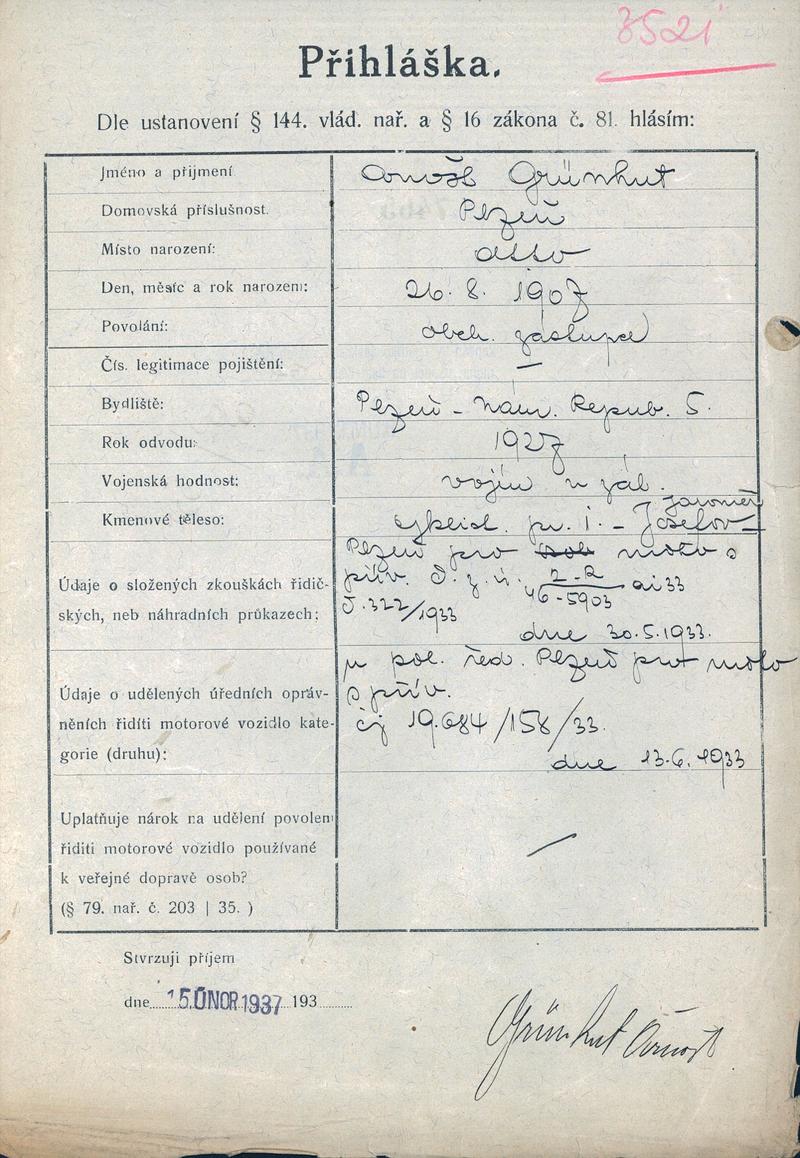 3521
Přihláška.
Dle ustanovení § 144. vlád. nař. a § 16 zákona č. 81. hlásím:
Jméno a přijmení Arnošt Grünhut
Domovská příslušnost. Plzeň
Místo narození: detto
Den, měsíc a rok narození: 26. 8. 1907
Povolání: obch. zástupce
Čís. legitimace pojištění: —
Bydliště: Plzeň - Nám. Repub. 5.
Rok odvodu: 1927
Vojenská hodnost: vojín v zál.
Jaroměř
Kmenové těleso: pr. 1. - Josefov
Plzeň pro moto s
Údaje o složených zkouškách řidič-
přív. č. z. ú. 2-2/46-5903 ai 33
ských, neb náhradních průkazech:
č. 322/1933
dne 30.5.1933.
u pol. řed. Plzeň pro moto
Údaje o udělených úředních opráv-
s přív.
něních řidíti motorové vozidlo kate-
čj 19.684/158/33.
gorie (druhu):
dne 13.6.1933
Uplatňuje nárok na udělení povolení
řiditi motorové vozidlo používané —
k veřejné dopravě osob?
(§ 79. nař. č. 203 | 35. )
Stvrzuji příjem
dne 15. ÚNOR 1937 193
Grünhut Arnošt